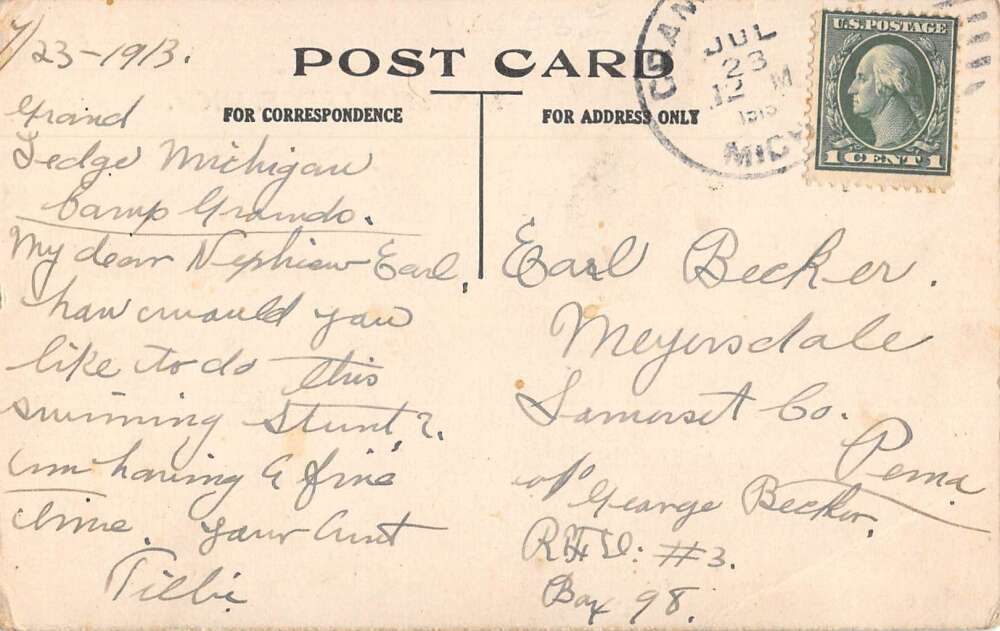 7/23-1913.
POST CARD
FOR CORRESPONDENCE
FOR ADDRESS ONLY
GRAN
JUL
23
12 M
1913
MICH
U.S. POSTAGE
1 CENT 1
Grand
Ledge Michigan
Camp Grounds.
My dear Nephiew Earl,
how would you
like to do this
swimming stunt?.
am having a fine
time. your Aunt
Tillie
Earl Becker.
Meyersdale
Somerset Co.
Penna
c/o George Becker.
R.F.D. #3.
Box 98.